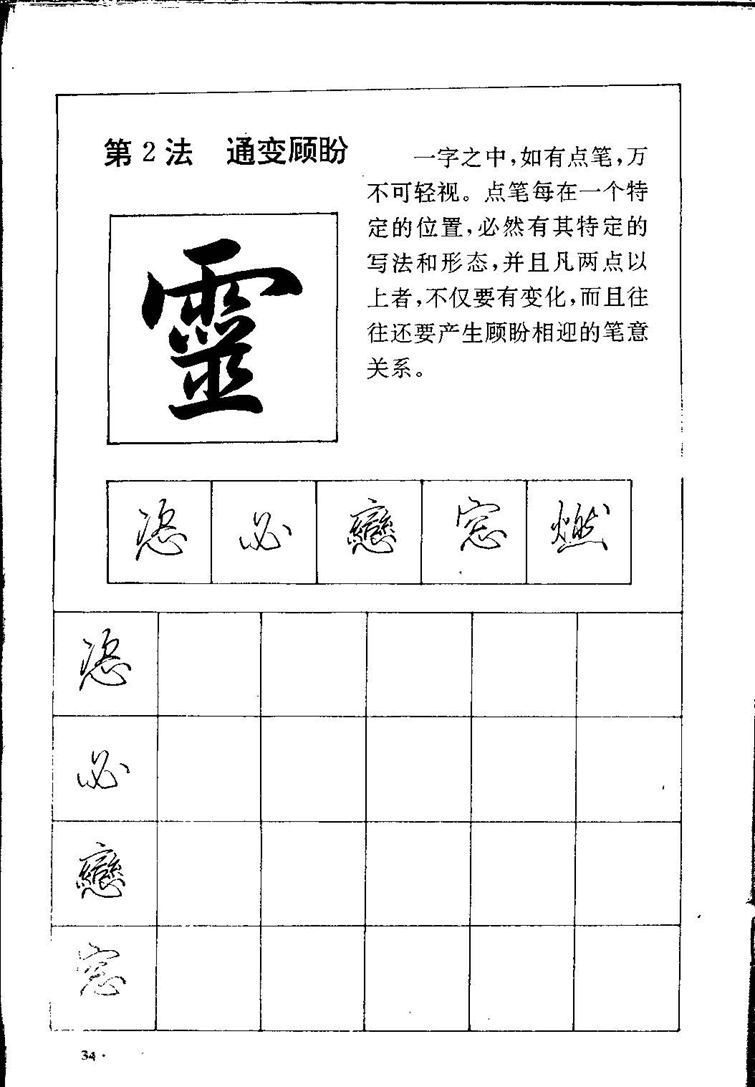 第2法 通变顾盼
一字之中，如有点笔，万
不可轻视。点笔每在一个特
定的位置，必然有其特定的
写法和形态，并且凡两点以
上者，不仅要有变化，而且往
往还要产生顾盼相迎的笔意
关系。
靈
必 戀 窓 燃
必
戀
窓
34